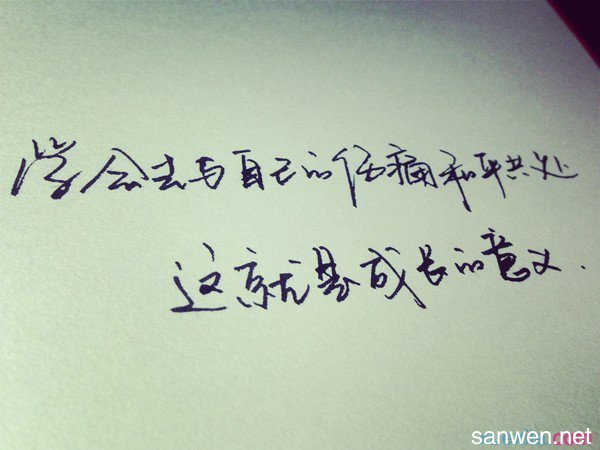 学会去与自己的伤痛和平共处
这就是成长的意义.
sanwen.net